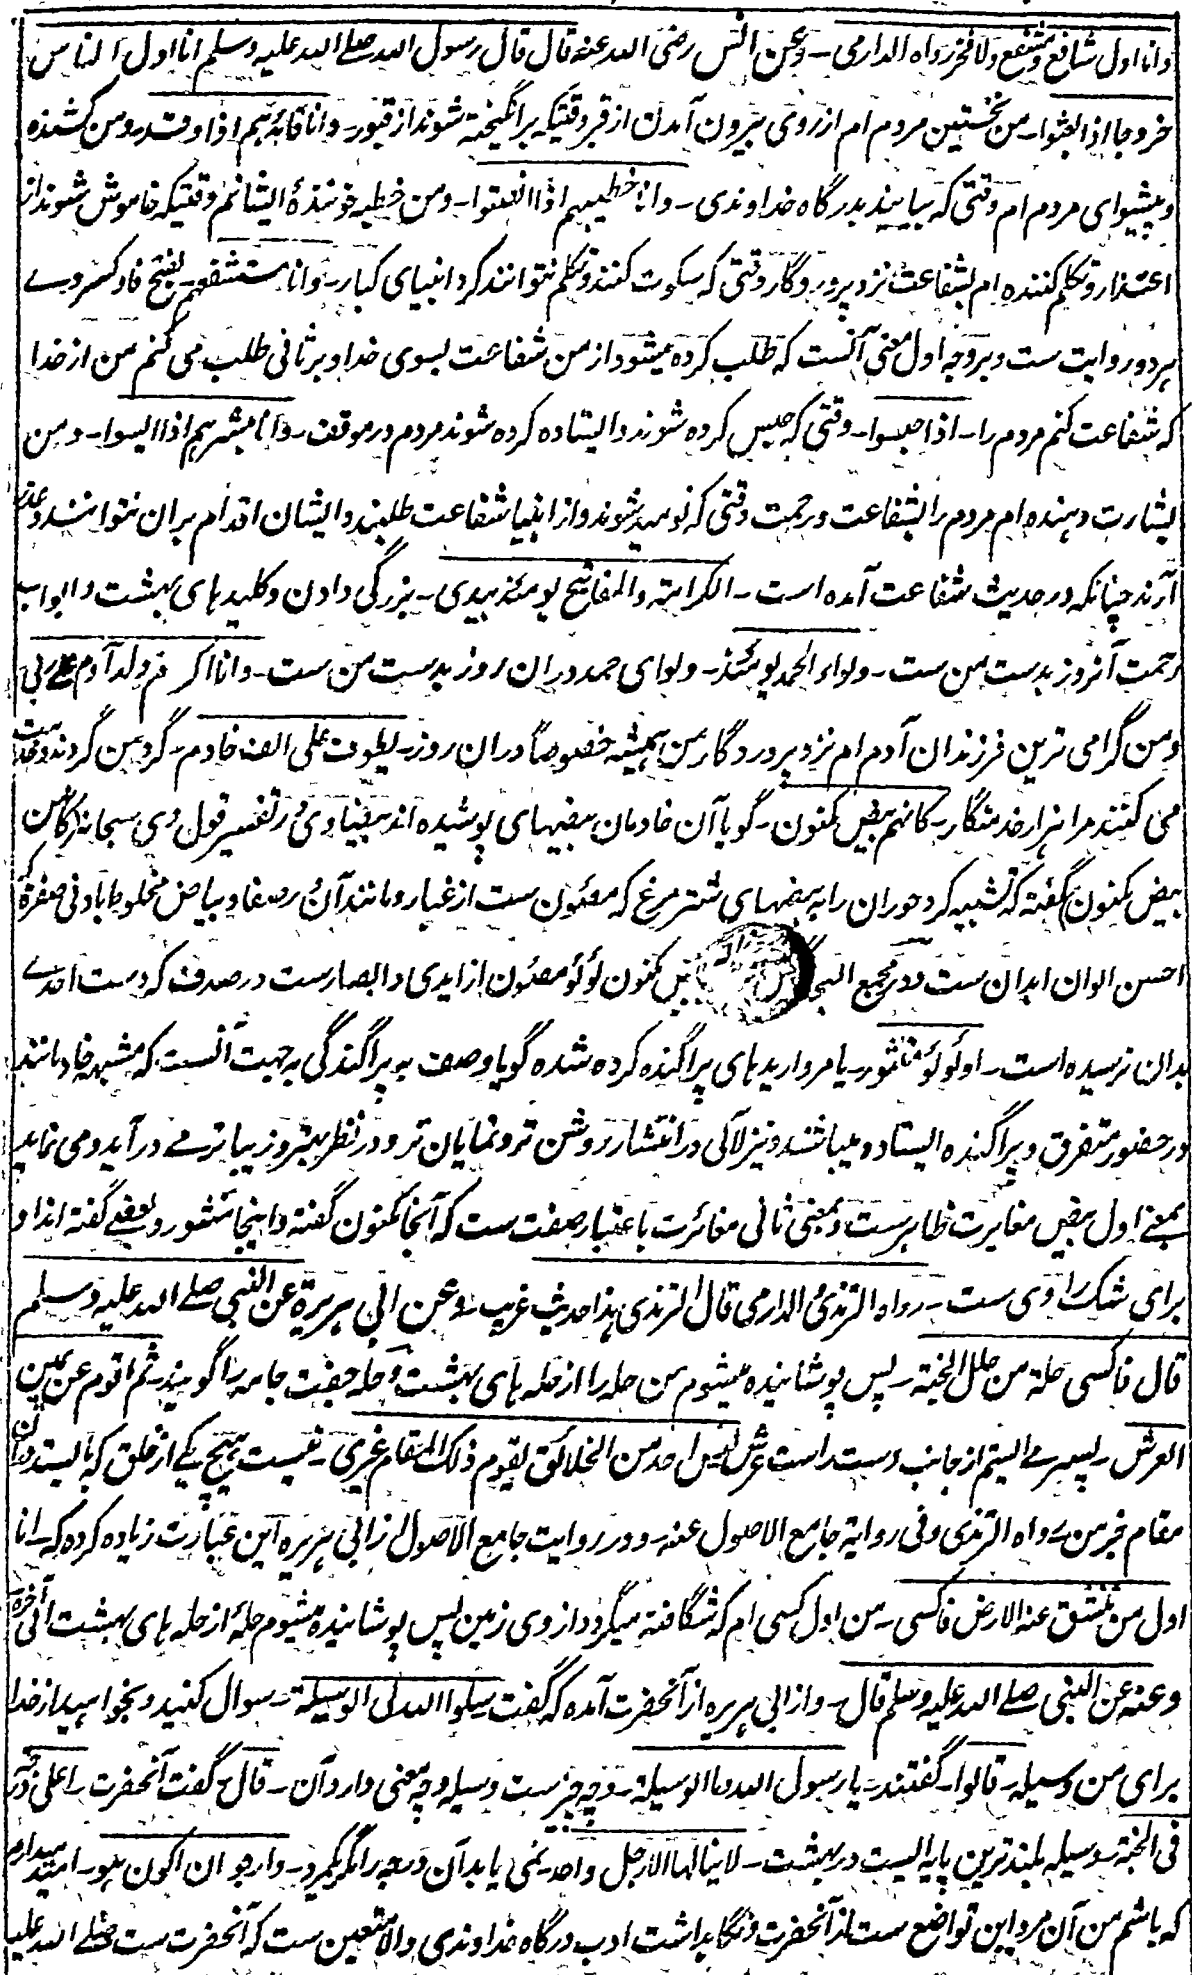 وانا اول شافع ومشفع ولا فخر رواه الدارمی ـ وعن انس رضی الله عنه قال قال رسول الله صلے الله علیه وسلم انا اول الناس
خروجا اذا بعثوا ـ من نخستین مردم ام از روی بیرون آمدن از قبر وقتیکه برانگیخته شوند از قبور ـ وانا قائدهم اذا وفدوا ـ ومن کشنده
وپیشوای مردم ام وقتی که بیایند بدرگاه خداوندی ـ وانا خطیبهم اذا انصتوا ـ ومن خطبه خوانندهٔ ایشانم وقتیکه خاموش شوند از
اعتذار وتکلم کننده ام بشفاعت نزد پروردگار وقتی که سکوت کنند وتکلم نتوانند کرد انبیای کبار ـ وانا مستشفعهم بفتح فا وکسر وے
بهر دو روایت ست وبر وجه اول معنی آنست که طلب کرده میشود از من شفاعت بسوی خدا وبر ثانی طلب می کنم من از خدا
که شفاعت کنم مردم را ـ اذا حبسوا ـ وقتی که حبس کرده شوند وایستاده کرده شوند مردم در موقف ـ وانا مبشرهم اذا ایسوا ـ ومن
بشارت دهنده ام مردم را بشفاعت ورحمت وقتی که نومید شوند واز انبیا شفاعت طلبند وایشان اقدام بران نتوانند وعذر
آرند چنانکه در حدیث شفاعت آمده است ـ الکرامة والمفاتیح یومئذ بیدی ـ بزرگی دادن وکلیدهای بهشت وابواب
رحمت آنروز بدست من ست ـ ولواء الحمد یومئذ ـ ولوای حمد دران روز بدست من ست ـ وانا اکرم ولد آدم علے ربی
ومن گرامی ترین فرزندان آدم ام نزد پروردگار من همیشه خصوصاً دران روز ـ یطوف علی الف خادم ـ گرد من گردند وخدمت
می کنند مرا هزار خدمتگار ـ کانهم بیض مکنون ـ گویا آن خادمان بیضهای پوشیده اند بیضاوی در تفسیر قول وی سبحانه (کانهن
بیض مکنون) گفته که تشبیه کرد حوران را به بیضهای شترمرغ که مصئون ست از غبار ومانند آن در صفا وبیاض مخلوط بادنی صفرة که
احسن الوان ابدان ست ودر مجمع البحار مکنون لؤلؤ مصئون از ایدی وابصارست در صدف که دست احدے
بدان نرسیده است ـ او لؤلؤ منثور ـ یا مرواریدهای پراگنده کرده شده گویا وصف به پراگندگی به جهت آنست که مشبهه خادمانند
در حضور متفرق وپراگنده ایستاد ومیباشند ونیز لآلی در انتشار روشن تر ونمایان تر ودر نظر بیشتر وزیباتر مے درآید ومی نماید
بمعنے اول بیض مغایرت ظاهرست وبمعنی ثانی مغائرت باعتبار صفت ست که آنجا مکنون گفته واینجا منثور وبعضے گفته اند او
برای شک راوی ست ـ رواه الترمذی والدارمی قال الترمذی هذا حدیث غریب ـ وعن ابی هریرة عن النبی صلے الله علیه وسلم
قال فاکسی حلة من حلل الجنة ـ پس پوشانیده میشوم من حله را از حله های بهشت وحله جفت جامه را گویند ـ ثم اقوم عن یمین
العرش ـ پسترمے ایستم از جانب دست راست عرش لیس احد من الخلائق یقوم ذلک المقام غیری ـ نیست هیچ یکے از خلق که بایستد دران
مقام غیر من رواه الترمذی وفی روایة جامع الاصول عنه ـ ودر روایت جامع الاصول از ابی هریره این عبارت زیاده کرده که ـ انا
اول من تنشق عنه الارض فاکسی ـ من اول کسی ام که شگافته میگردد از وی زمین پس پوشانیده میشوم حلهٔ از حله های بهشت الی آخره
وعنه عن النبی صلے الله علیه وسلم قال ـ واز ابی هریره از آنحضرت آمده که گفت سلوا الله لی الوسیلة ـ سوال کنید وبخواهید از خدا
برای من وسیله ـ قالوا ـ گفتند ـ یا رسول الله وما الوسیلة ـ وچه چیزست وسیله وچه معنی دارد آن ـ قال گفت آنحضرت ـ اعلی درجة
فی الجنة ـ وسیله بلندترین پایه ایست در بهشت ـ لا ینالها الا رجل واحد ـ نمی یابد آن درجه را مگر یکمرد ـ وارجو ان اکون هو ـ امید میدارم
که باشم من آن مرد این تواضع ست از آنحضرت ونگاهداشت ادب درگاه خداوندی والا متعین ست که آنحضرت ست صلے الله علیه